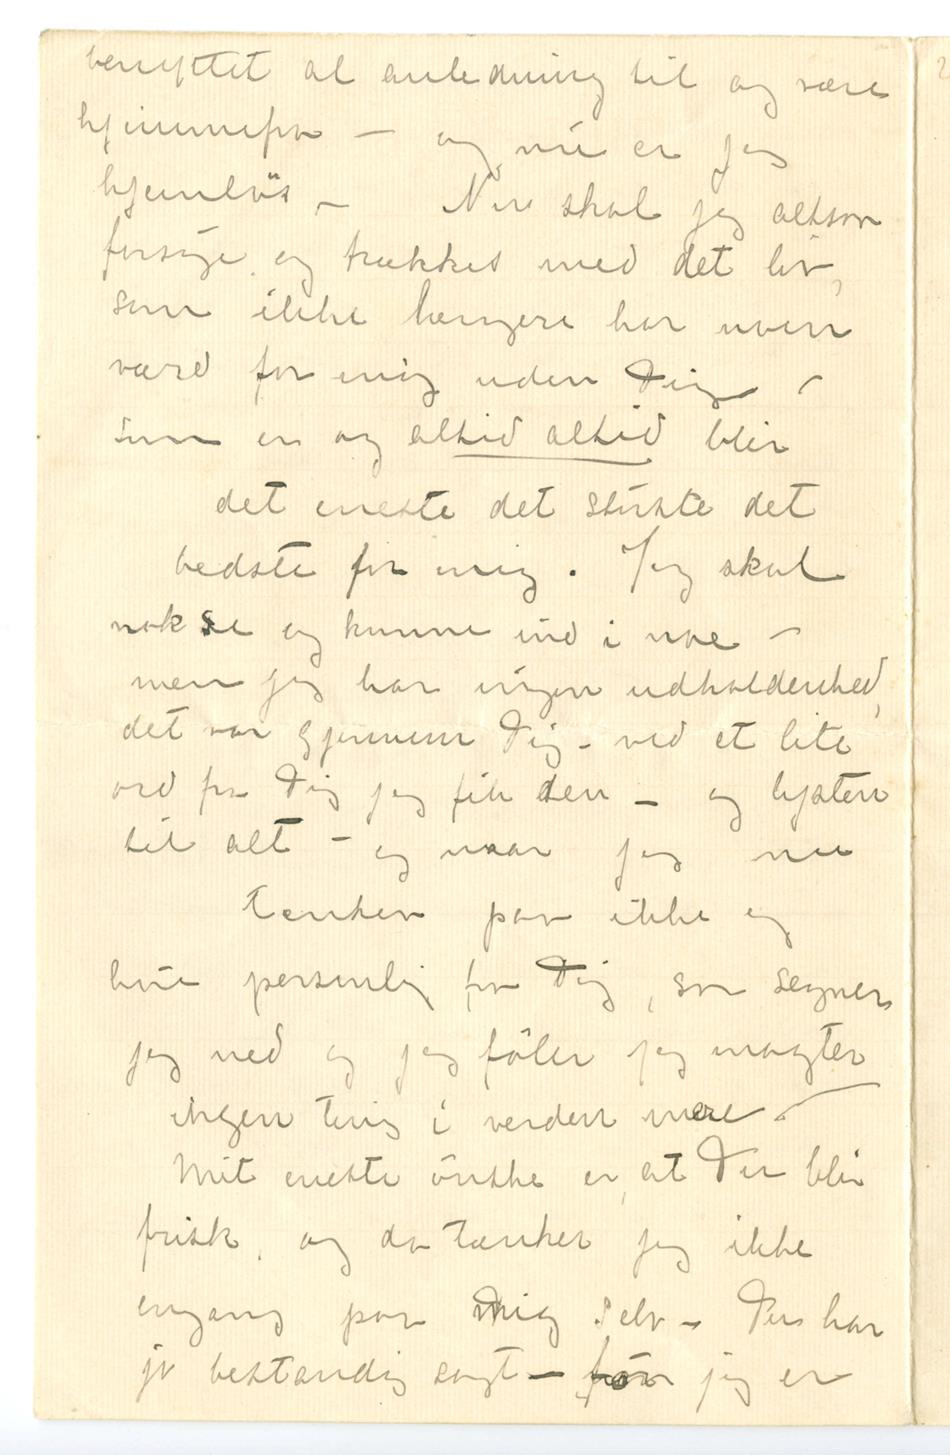 benyttet al anledning til og være
hjemmefra — og nu er jeg
hjemløs — Nu skal jeg altsaa
forsøge og trækkes med det liv,
som ikke længere har noen
værd for mig uden Dig —
som er og altid altid blir
det eneste det største det
bedste for mig. Jeg skal
nok se og kunne ind i noe —
men jeg har ingen udholdenhed,
det var gjennem Dig – ved et lite
ord fra Dig jeg fik den — og lysten
til alt — og naar jeg nu
tænker paa ikke og
høre personlig fra Dig, saa segner
jeg ned og jeg føler jeg magter
ingen ting i verden mere —
Mit eneste ønske er, at Du blir
frisk, og da tænker jeg ikke
engang paa mig selv – Du har
jo bestandig sagt — før jeg er